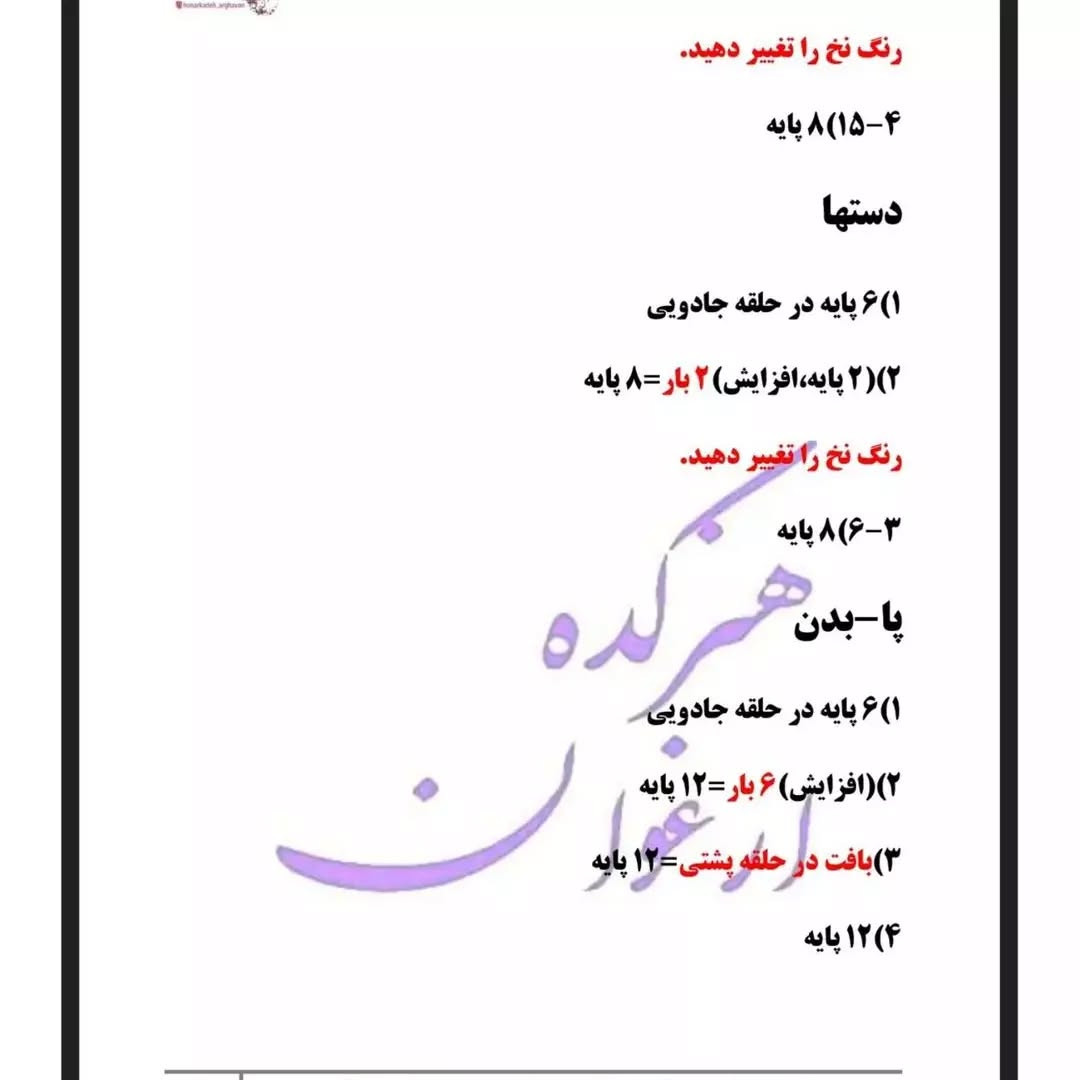 honarkadeh_arghavan
رنگ نخ را تغییر دهید.
۴-۱۵)۸ پایه
دستها
۱)۶ پایه در حلقه جادویی
۲)(۲ پایه،افزایش)۲ بار=۸ پایه
رنگ نخ را تغییر دهید.
۳-۶)۸ پایه
پا-بدن
۱)۶ پایه در حلقه جادویی
۲)(افزایش)۶ بار=۱۲ پایه
۳)بافت در حلقه پشتی=۱۲ پایه
۴)۱۲ پایه
هنرکده
ارغوان